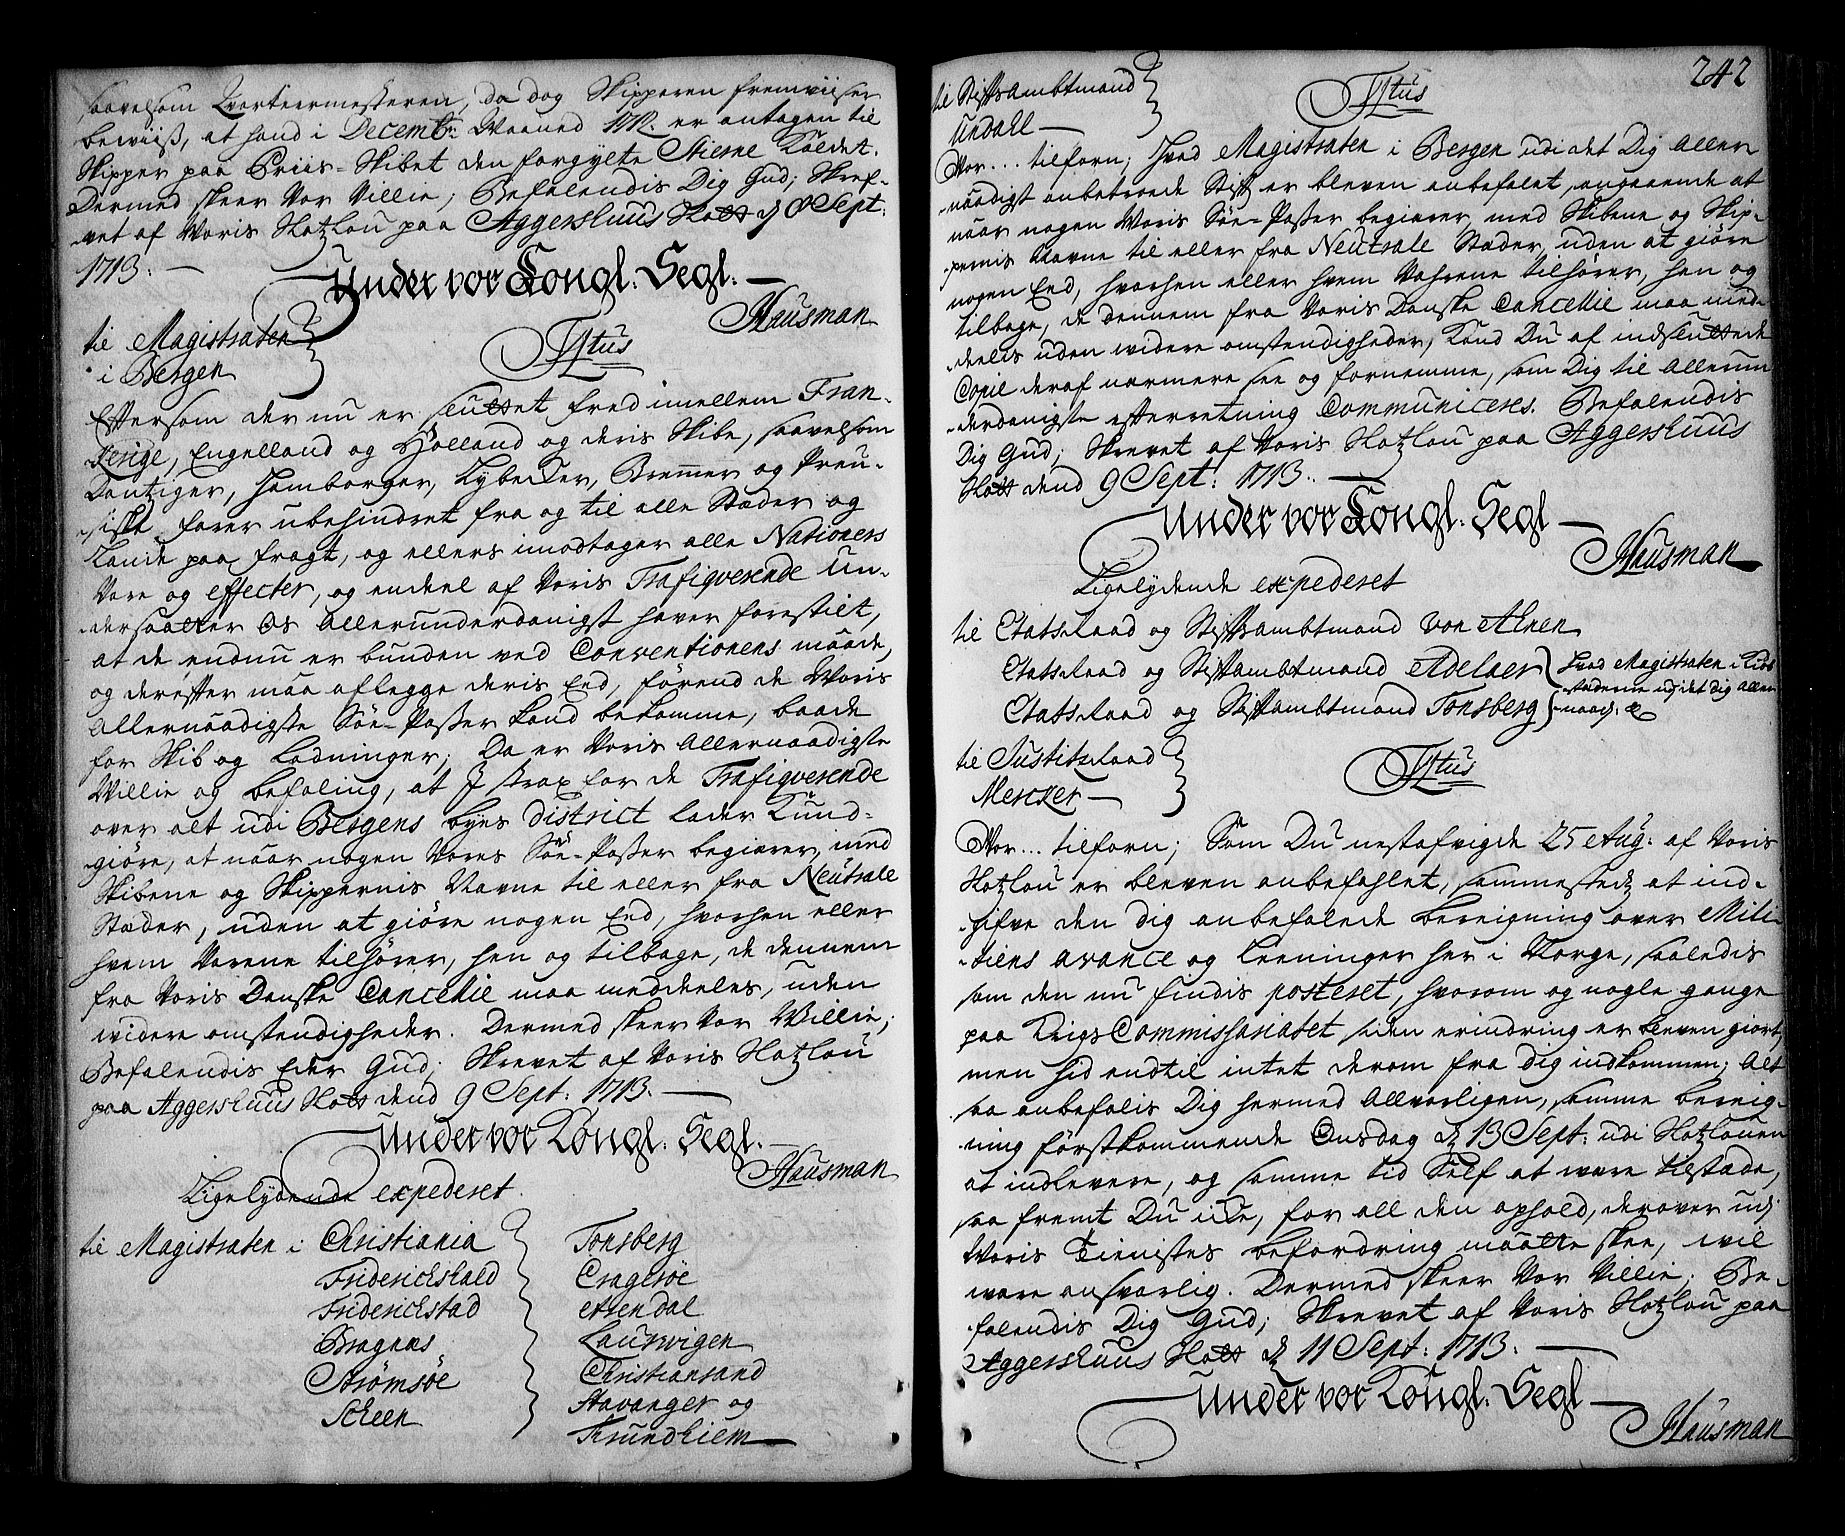 saavelsom Qvarteermesteren, da dog Skipperen fremviiser
beviiß, at hand i Decembr: Maaned 1712. er antagen til
Skipper paa Priis-Skibet den forgylte Stierne kaldet.
Dermed skeer Vor Villie; Befalendis Dig Gud; Skref-
vet af Voris Slotzlou paa Aggershuus Slott d 8 Sept:
1713.
Under vor Kongl. Segl.
Hausman
til Magistraten
i Bergen
Tytus
Eftersom der nu er sluttet fred imellem Fran-
kerige, Engelland og Holland og deris Skibe, saavelsom
Dantziger, Hamborger, Lybecker, Bremer og Preu-
sisk, farer ubehindret fra og til alle Stæder og
Lande paa fragt, og ellers imodtager alle Nationers
Vare og effecter, og endeel af Voris Trafiqverende Un-
dersaatter Os Allerunderdanigst haver forestilt,
at de endnu er bunden ved Conventionens maade,
og derefter maa aflegge deris Eed, førend de Voris
Allernaadigste Søe-Passer kand bekomme, baade
for Skib og Ladninger; Da er Voris Allernaadigste
Villie og befaling, at I strax for de Trafiqverende
over alt udi Bergens byes district lader Kund-
giøre, at naar nogen Vores Søe-Passer begiærer, med
Skibene og Skippernis Navne til eller fra Neutrale
Stæder, uden at giøre nogen Eed, hvorhen eller
hvem Varene tilhører, hen og tilbage, de dennem
fra Voris Danske Cancellie maa meddeeles, uden
widere omstendigheder. Dermed skeer Vor Willie;
Befalendis Eder Gud; Skrevet af Voris Slotzlou
paa Aggershuus Slott dend 9 Sept: 1713.
Under vor Kongl. Segl.
Hausman
Ligelydende expederet
til Magistraten i Christiania
Friderichshald
Friderichstad
Bragnæs
Strømsøe
Scheen
Tonsberg
Cragerøe
Arendal
Laurwigen
Christiansand
Stavanger og
Trundhiem
242
til Stiftsambtmand
Undall
Tytus
Vor... tilforn; Hvad Magistraten i Bergen udi det Dig Aller-
naadigst anbetroede Stift er bleven anbefalet, angaaende at
naar nogen Voris Søe-Passer begiærer, med Skibene og Skip-
pernis Navne til eller fra Neutrale Stæder, uden at giøre
nogen Eed, hvorhen eller hvem Vahrene tilhører, hen og
tilbage, de dennem fra Voris Danske Cancellie maa med-
deelis uden widere omstendigheder, Kand Du af indsluttede
Copie deraf nærmere see og fornemme, som Dig til Allerun-
derdanigste efterretning Communiceres. Befalendis
Dig Gud; Skrevet af Voris Slotzlou paa Aggershuus
Slott dend 9 Sept: 1713.
Under vor Kongl. Segl
Hausman
Ligelydende expederet
til Etatsraad og Stiftsambtmand von Ahnen
Etatsraad og Stiftambtmand Adelaer
Etatsraad og Stiftambtmand Tonsberg
hvad Magistraten i Kiøb-
stæderne udi det dig aller-
naad: &c
til Justitzraad
Mercker
Tytus
Vor... tilforn; Som Du nestafvigte 25 Aug: af Voris
Slotzlou er bleven anbefahlet, sammestedz at ind-
gifve den Dig anbefalede bereigning over Mili-
tiens avance og Leeninger her i Norge, saaledis
som den nu findis posteret, hvorom og nogle gange
paa KrigsCommissariatet siden erindring er bleven giort,
men hid endtil intet derom fra Dig indkommen; Alt
saa anbefalis Dig hermed Allvorligen, samme bereig-
ning førstkommende Onsdag d 13 Sept: udi Slotzlouen
at indlevere, og samme tid Self at være tilstæde,
saa fremt Du icke, for all den ophold, derover udj
Voris Tienistes befordring maatte skee, wil
ware ansvarlig. Dermed skeer Vor Villie; Be-
falendis Dig Gud; Skrevet af Voris Slotzlou paa
Aggershuus Slott d 11 Sept: 1713.
Under vor Kongl. Segl
Hausman